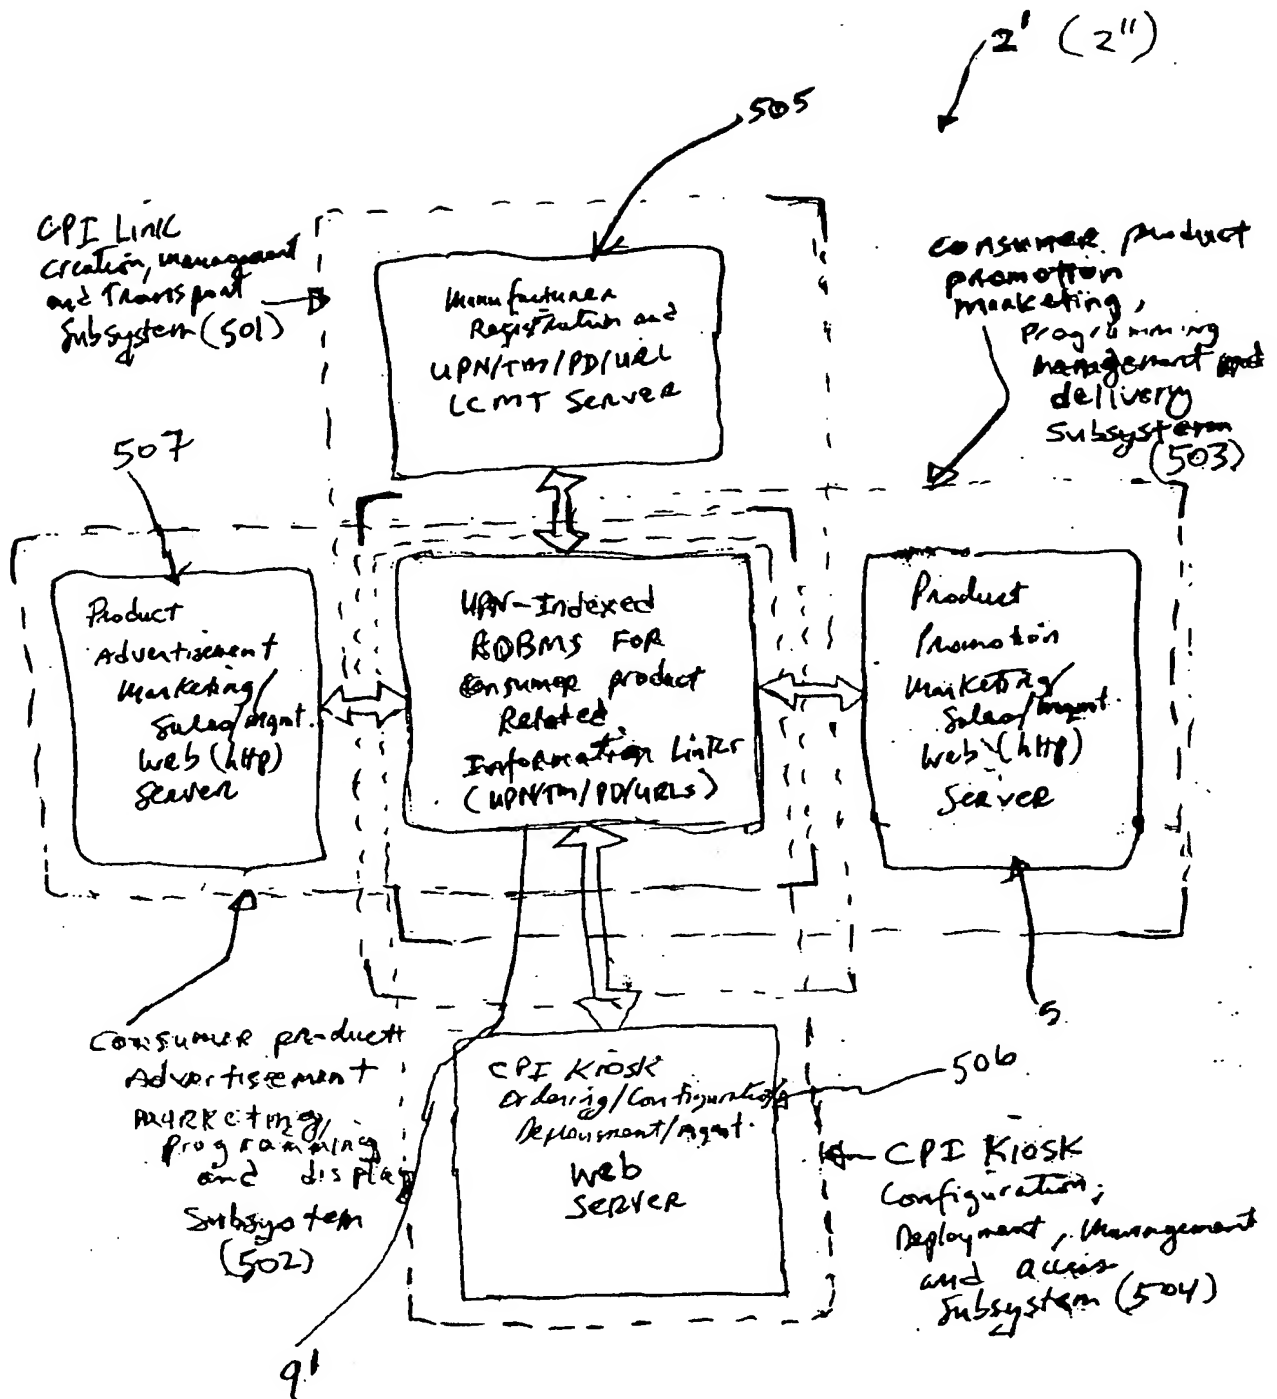 2' (2")
505
CPI Link
Creation, Management
and Transport
Subsystem (501)
Manufacturer
Registration and
UPN/TM/PD/URL
LCMT SERVER
Consumer product
promotion
marketing,
Programming
management and
delivery
Subsystem
(503)
507
Product
Advertisement
Marketing/
Sales/mgmt.
Web (http)
Server
UPN-Indexed
RDBMS FOR
Consumer product
Related
Information Links
(UPN/TM/PD/URLs)
Product
Promotion
Marketing/
Sales/mgmt.
Web (http)
Server
5
Consumer product
Advertisement
Marketing,
programming
and display
Subsystem
(502)
CPI Kiosk
Ordering/Configuration
Deployment/Mgmt.
Web
Server
506
CPI Kiosk
Configuration,
Deployment, Management
and access
Subsystem (504)
9'